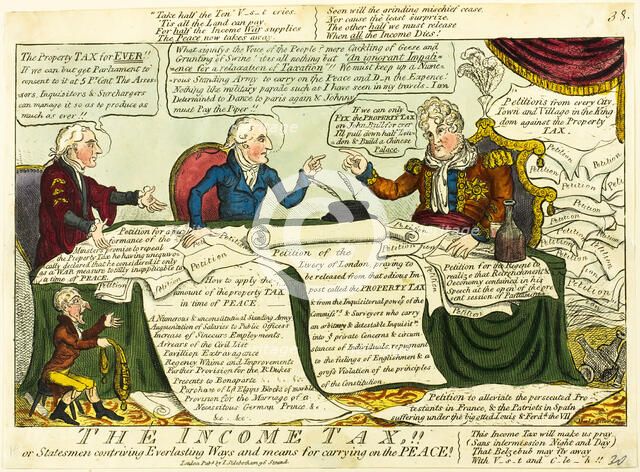 "Take half the Ten" V--s--t cries.
'Tis all the Land can pay.
For half the Income War supplies
The Peace now takes away.
Soon will the grinding mischief cease.
Nor cause the least surprize.
The other half we must release
When all the Income Dies!
38.
The Property TAX for EVER!!
If we can but get Parliament to
consent to it at 5 P Cent. The Assess-
sors, Inquisitors & Surchargers
can manage it so as to produce as
much as ever!!
What signifys the Voice of the People? mere Cackling of Geese and
Grunting of Swine! it is all nothing but "An ignorant Impati-
ence for a relaxation of Taxation"!! We must keep up a Nume-
rous Standing Army to carry on the Peace and D--n the Expence!
Nothing like military parade such as I have seen in my travels. I am
Determined to Dance to paris again & Johnny
must Pay the Piper!!
If we can only
FIX the PROPERTY TAX
on John Bull for ever
I'll pull down half Lon-
don & Build a Chinese
Palace.
Petitions from every City
Town and Village in the King
dom against the Property
TAX.
Petition
Petition
Petition
Petition
Petition
Petition
Petition
Petition
Petition for a per
formance of the
Ministers promise to repeal
the Property Tax he having unequivo-
cally declared that he considered it only
as a WAR measure totally inapplicable to
a time of PEACE.
Petition of the
Livery of London, praying to
be released from that odious Im
post called the PROPERTY TAX
& from the Inquisitorial power of the
Commiss.rs & Surveyers who carry
an arbitrary & detestable Inquisitn.
into ye private Concerns & circum
stances of Individuals, repugnant
to the feelings of Englishmen & a
gross Violation of the principles
of the Constitution
Petition for the Regent to
realize that Retrenchment &
Oeconomy contained in his
Speech at the open.g of the pre
sent session of Parliament
How to apply the
amount of the property TAX
in time of PEACE
A Numerous & unconstitutional Standing Army
Augmentation of Salaries to Public Officers
Increase of Sinecure Employments.
Arrears of the Civil List
Pavillion Extravagance
Regency Whims and Improvements
Further Provision for the R. Dukes
Presents to Bonaparte &c &c &c
Purchase of Ld. Elgins Blocks of marble
Provision for the Marriage of a
Necessitous German Prince &c
&c &c
Petition to alleviate the persecuted Pro
testants in France, & the Patriots in Spain
suffering under the bigotted Louis & Ferd.d the VII
THE INCOME TAX,!!
or Statesmen contriving Everlasting Ways and means for carrying on the PEACE!
This Income Tax will make us pray
(Sans intermission Night and Day)
That Belzebub may fly away
With V--s--t and C--le--h!!